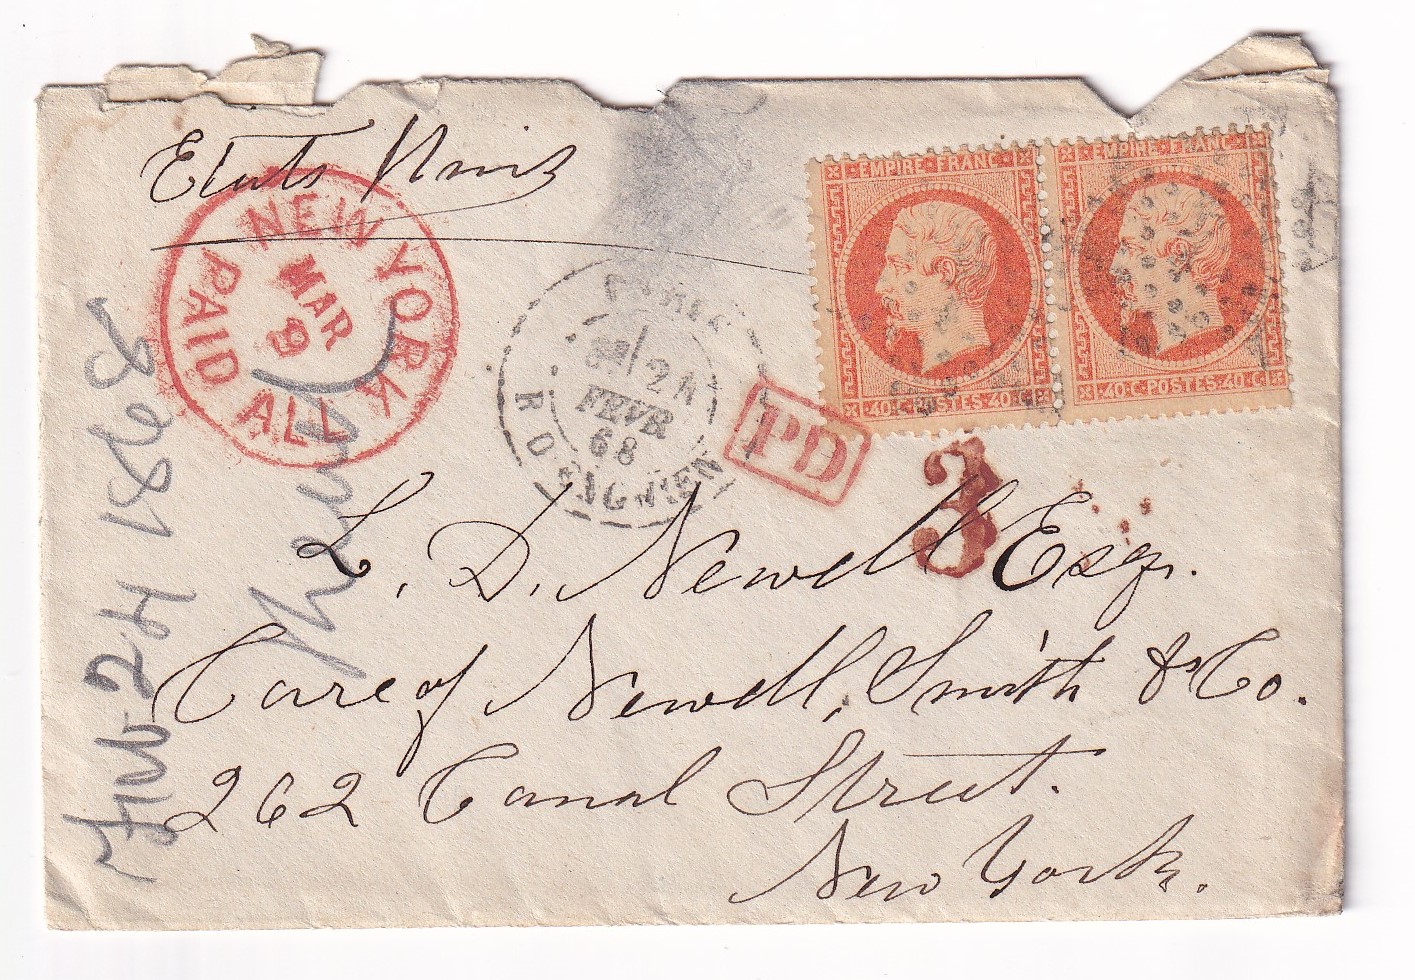 Etats Unis
NEW YORK
MAR
9
PAID ALL
PARIS
2
FEVR
68
PD
EMPIRE FRANC
40·C·POSTES·40·C
EMPIRE FRANC
40·C·POSTES·40·C
3
L. D. Newell Esqr.
Care of Newell, Smith & Co.
262 Canal Street.
New York.
Feb 24 1868